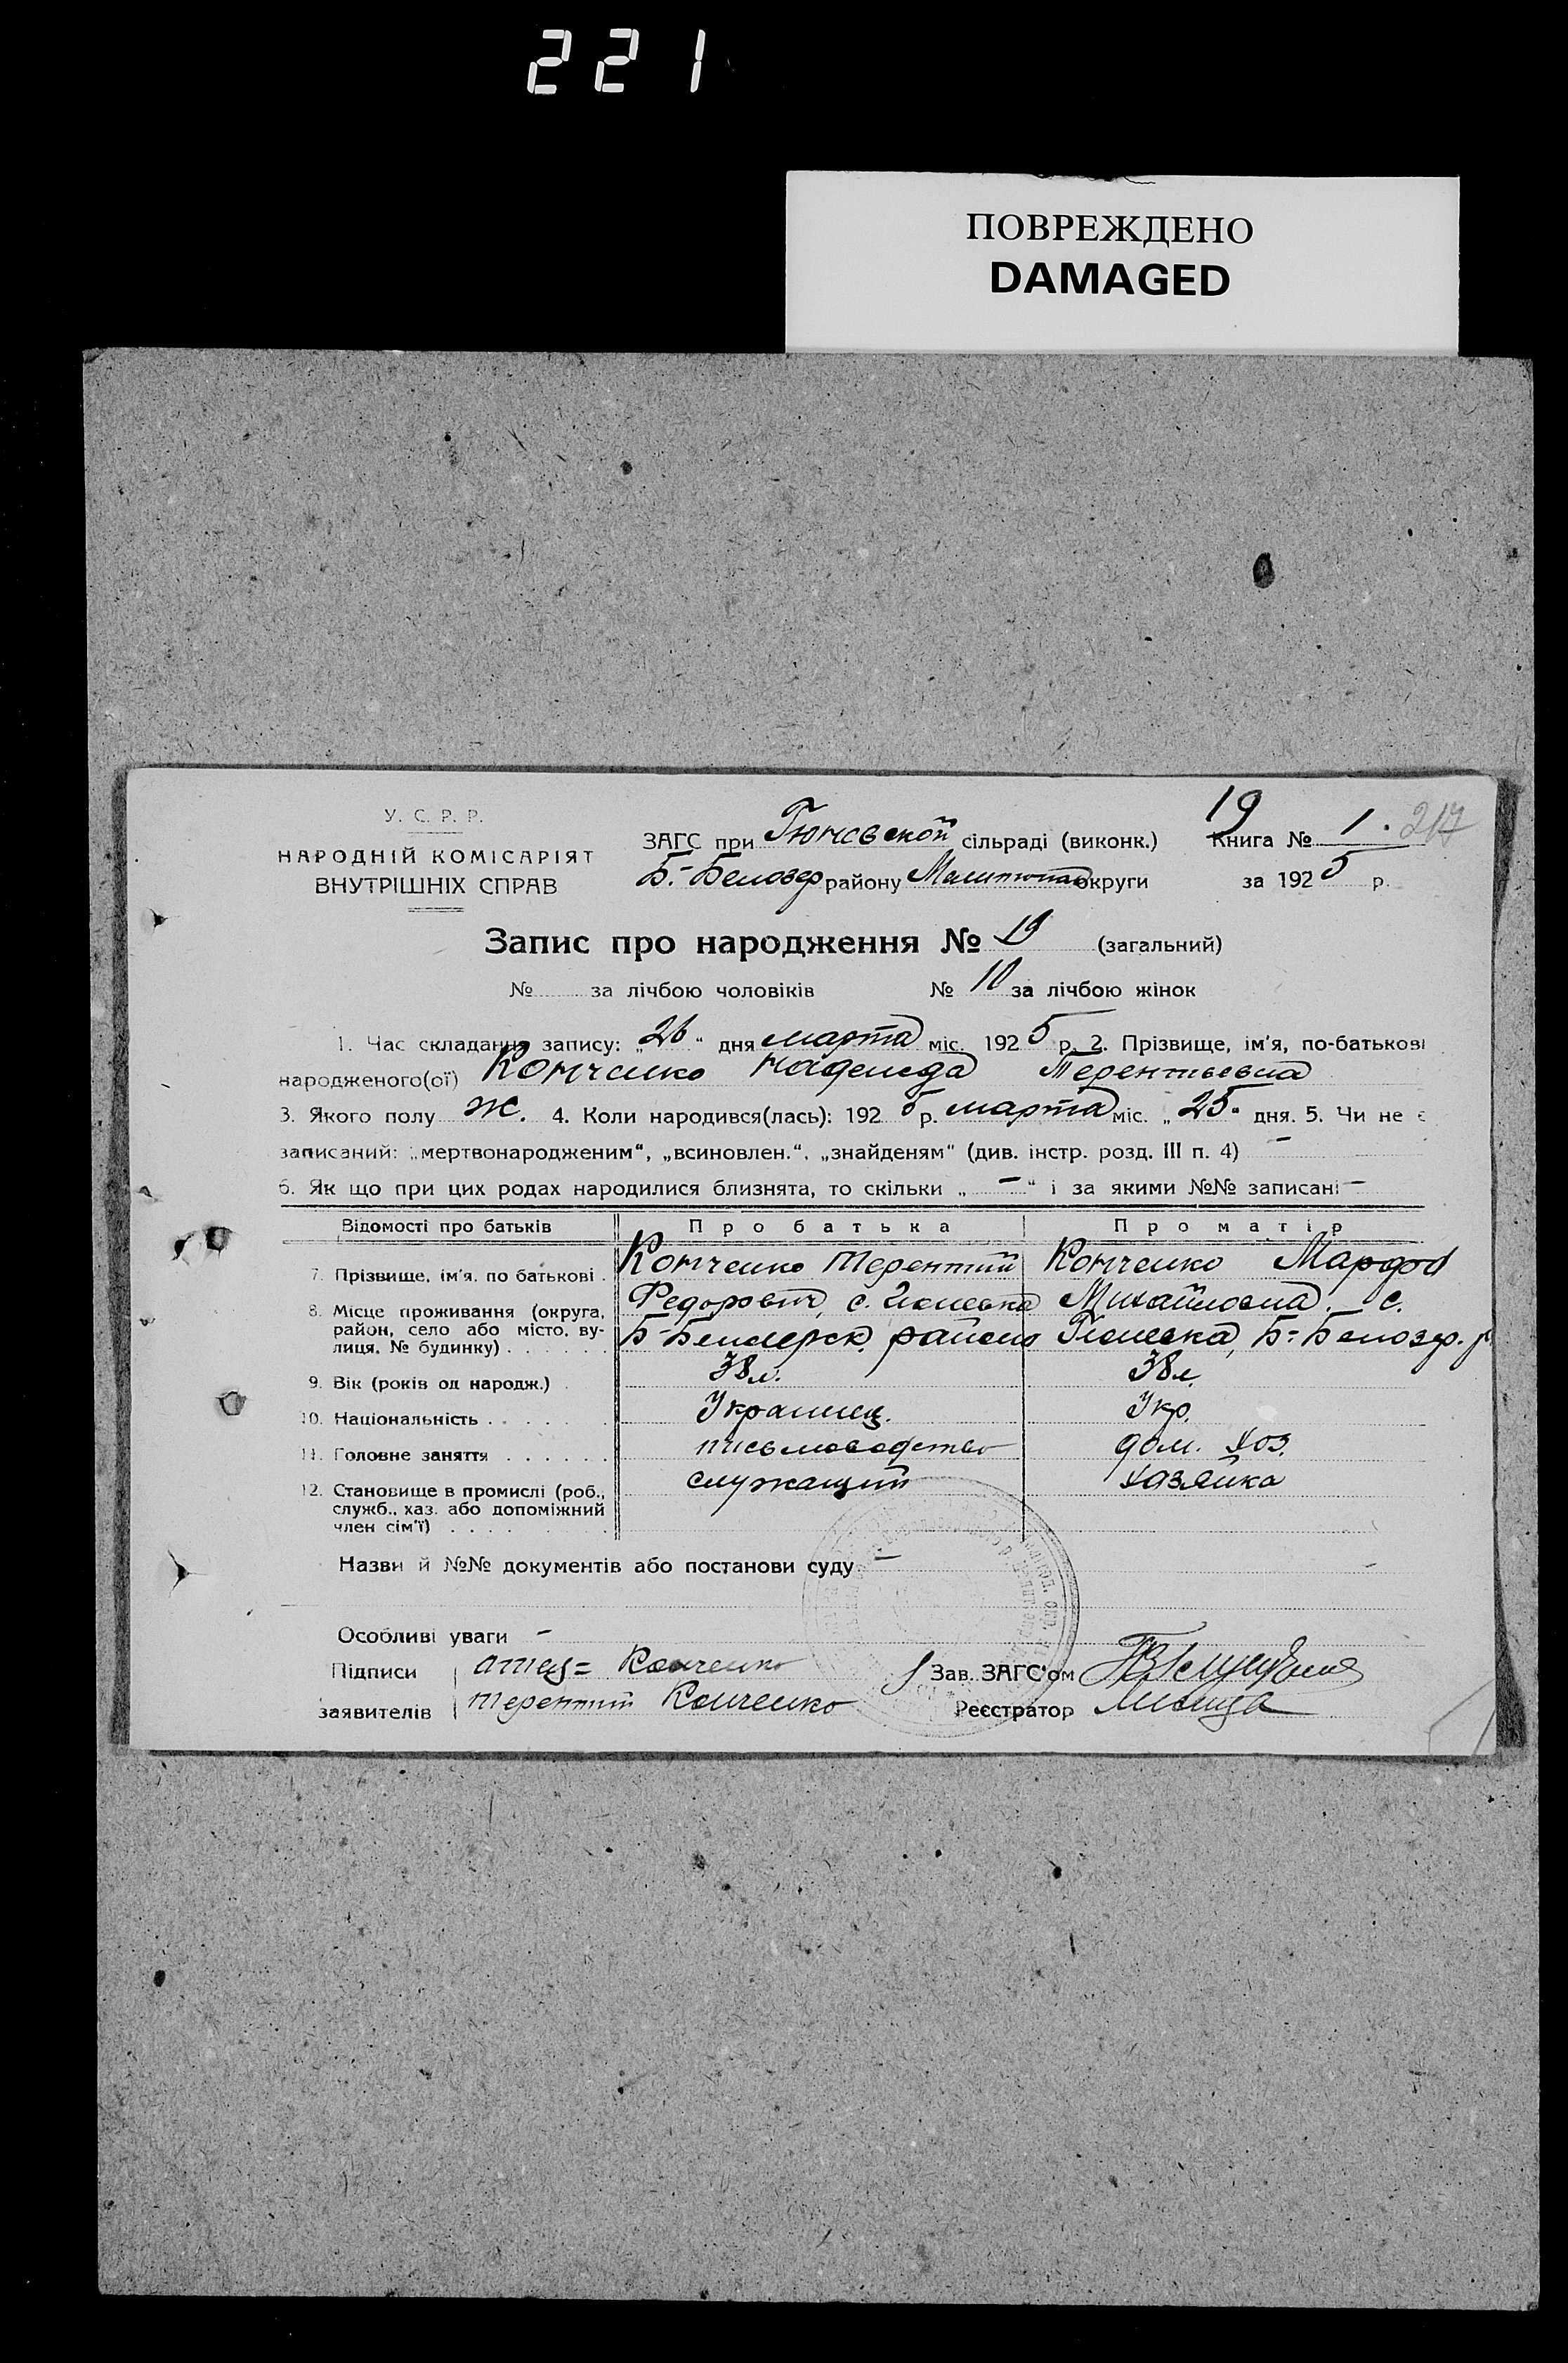 221
ПОВРЕЖДЕНО
DAMAGED
У. С. Р. Р.
НАРОДНІЙ КОМІСАРІЯТ
ВНУТРІШНІХ СПРАВ
ЗАГС при Гюневской сільраді (виконк.)
Б.-Белозер району Мелитопол округи
19
Книга № 1. 217
за 1925 р.
Запис про народження № 19 (загальний)
№ за лічбою чоловіків № 10 за лічбою жінок
1. Час складання запису: „26“ дня марта міс. 1925 р. 2. Прізвище, ім'я, по-батькові
народженого(ої) Конченко Надежда Терентьевна
3. Якого полу Ж. 4. Коли народився(лась): 1925 р. марта міс. „25“ дня. 5. Чи не є
записаний: „мертвонародженим“, „всиновлен.“, „знайденям“ (див. інстр. розд. III п. 4) –
6. Як що при цих родах народилися близнята, то скільки „–“ і за якими №№ записані –
Відомості про батьків Про батька Про матір
7. Прізвище, ім'я, по батькові . Конченко Терентий Конченко Марфа
8. Місце проживання (округа, район, село або місто, вулиця, № будинку) . . . . . .
Федорович, с. Гюневка Михайловна, с.
Б-Белозерск. района Гюневка, Б-Белозер. р.
9. Вік (років од народж.) . 38 л. 38 л.
10. Національність . . . . . . Украинец. Укр.
11. Головне заняття . . . . . . письмоводство дом. хоз.
12. Становище в промислі (роб., служб., хаз. або допоміжний член сім'ї) . . . . . .
служащий хозяйка
Назви й №№ документів або постанови суду –
Особливі уваги –
Підписи
заявителів
отец = Конченко
Терентий Конченко
Зав. ЗАГС'ом
Реєстратор